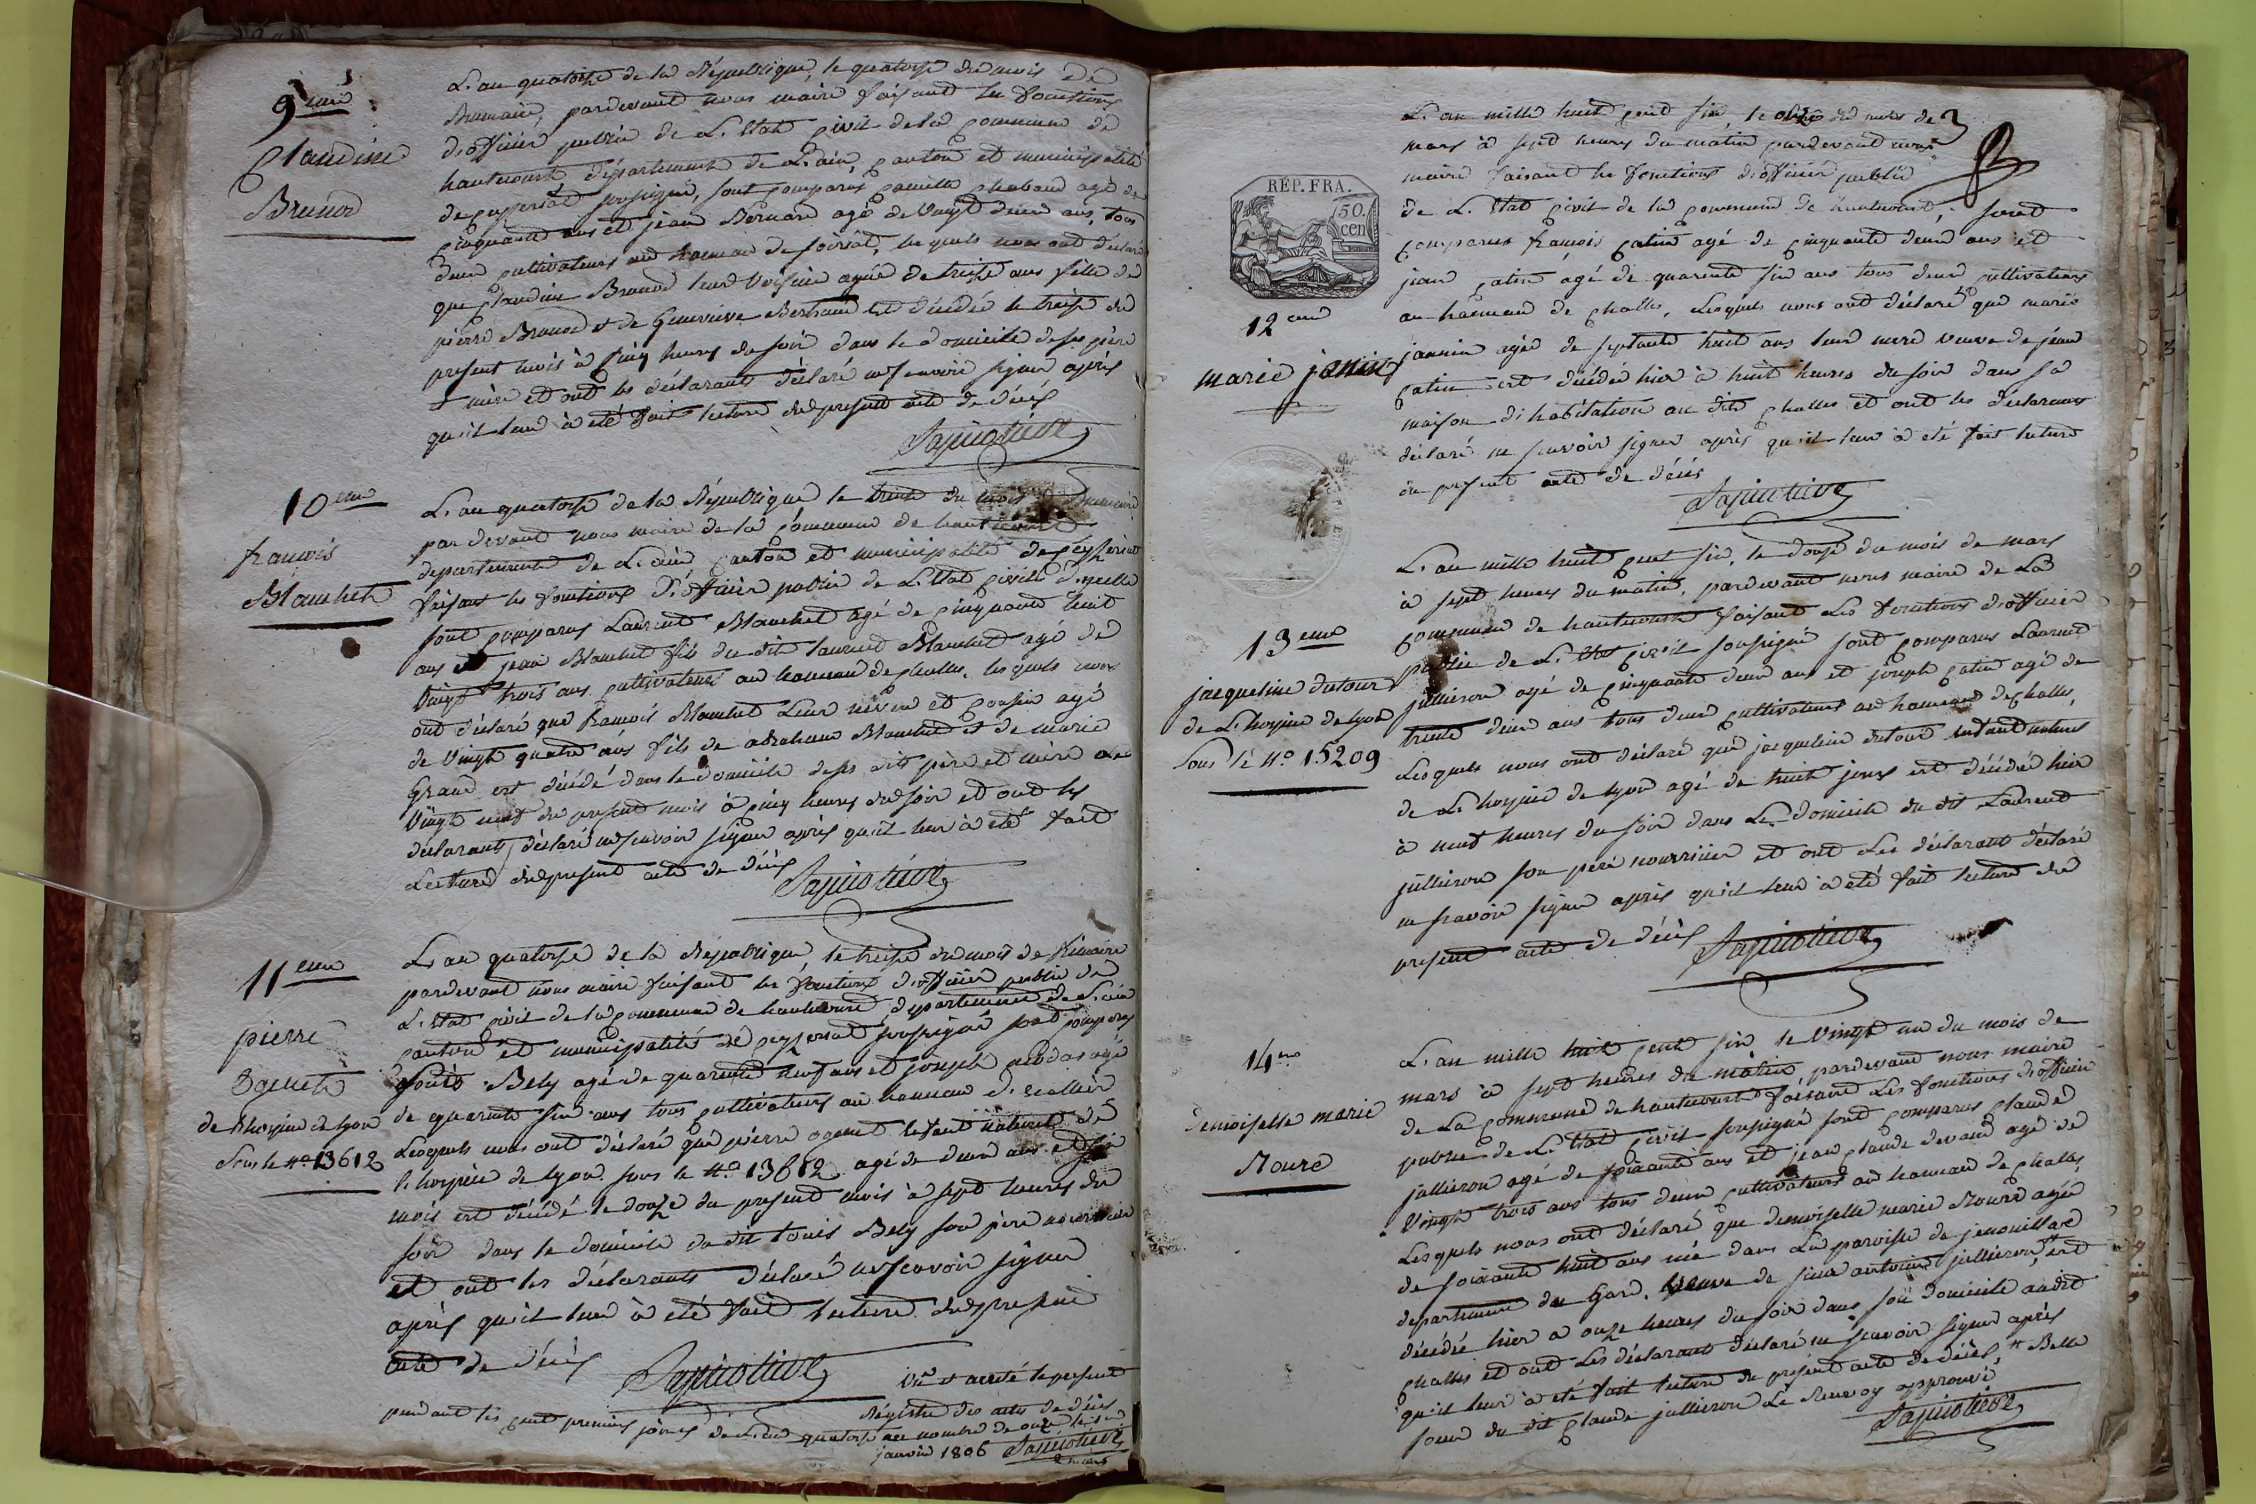 9eme
Claudine
Brunod
L'an quatorze de la République, le quatorze du mois de
Brumaire, pardevant nous maire faisant les fonctions
d'officier public de L'Etat civil de la commune de
hautecourt département de L'ain, canton et municipalité
de ceyzeriat soussigné, sont comparus Camille Chabaud agé de
cinquante ans et jean Bernard agé de Vingt deux ans, tous
deux cultivateurs au hameau de soiriat, les quels nous ont déclaré
que Claudine Brunod leur Voisine agée de treize ans fille de
pierre Brunod et de Genevieve Bertrand est décédée le treize du
présent mois à cinq heures du soir dans le domicile de ses père
et mère et ont les déclarants déclaré ne scavoir signer après
qu'il leur à été fait lecture du présent acte de décès
10eme
francois
Blanchet
L'an quatorze de la République le trente du mois de Brumaire
par devant nous maire de la commune de hautecourt
departement de L'ain canton et municipalité de ceyzeriat
faisant les fonctions d'officier public de L'Etat civil d'icelle
sont comparus Laurent Blanchet agé de cinquante huit
ans et jean Blanchet fils du dit laurent Blanchet agé de
Vingt trois ans cultivateurs au hameau de challes, les quels nous
ont déclaré que francois Blanchet Leur neveu et cousin agé
de Vingt quatre ans fils de abraham Blanchet et de marie
Grand est décédé dans le domicile de ses dits père et mère le
Vingt neuf du présent mois à cinq heures du soir et ont les
déclarants déclaré ne scavoir signer après qu'il leur à été fait
Lecture du présent acte de décès
11eme
pierre
ogenet
de Lhospice de lyon
sous le No 13612
L'an quatorze de la République, le treize du mois de frimaire
pardevant nous maire faisant les fonctions d'officier public de
L'Etat civil de la commune de hautecourt département de L'ain
canton et municipalité de ceyzeriat soussigné sont comparus
Louis Bely agé de quarante neuf ans et joseph agé
de quarante six ans tous cultivateurs au hameau d'
Lesquels nous ont déclaré que pierre ogenet enfant naturel de
L'hospice de lyon sous le No 13612 agé de deux ans et six
mois est décédé le douze du présent mois à sept heures du
soir dans le domicile du dit Louis Bely son père nourricier
et ont les déclarants déclaré ne scavoir signer
après qu'il leur à été fait lecture du présent
acte de décès
Vu et arrété le présent
Régistre des actes de décès
pendant les cent premiers jours de L'an quatorze au nombre de onze le
janvier 1806
3
RÉP. FRA.
50.
cen
12eme
marie janin
L'an mille huit cent six, le onze du mois de
mars à sept heures du matin pardevant nous
maire faisant les fonctions d'officier public
de L'Etat civil de la commune de hautecourt, sont
comparus francois catin agé de cinquante deux ans et
jean catin agé de quarente six ans tous deux cultivateurs
au hameau de challes, Lesquels nous ont déclaré que marie
jannin agée de septante huit ans leur mere veuve de jean
catin est décédée hier à huit heures du soir dans sa
maison d'habitation au dit challes et ont les déclarans
déclaré ne scavoir signer après qu'il leur à été fait lecture
du present acte de décès
13eme
jacqueline dutour
de L'hospice de lyon
sous le No 15209
L'an mille huit cent six, le douze du mois de mars
à sept heures du matin, pardevant nous maire de La
commune de hautecourt faisant Les fonctions d'officier
public de L'Etat civil soussigné sont comparus Laurent
jullieron agé de cinquante deux ans et joseph catin agé de
trente deux ans tous deux cultivateurs au hameau de challes,
Lesquels nous ont déclaré que jacqueline dutour enfant naturel
de L'hospice de lyon agé de huit jours est décédée hier
à neuf heures du soir dans Le domicile du dit Laurent
jullieron son père nourricier et ont Les déclarant déclaré
ne scavoir signer après qu'il leur à été fait lecture du
present acte de décès
14eme
demoiselle marie
Roure
L'an mille huit cent six le Vingt un du mois de
mars à sept heures du matin pardevant nous maire
de La commune de hautecourt faisant Les fonctions d'officier
public de L'Etat civil soussigné sont comparus claude
jullieron agé de soixante ans et jean claude devaud agé de
Vingt trois ans tous deux cultivateurs au hameau de challes
Lesquels nous ont déclaré que demoiselle marie Roure agée
de soixante huit ans née dans La paroisse de jenouillac
departement du Gard, Veuve de sieur antoine jullieron, est
décédée hier à onze heures du soir dans son domicile au dit
challes et ont Les déclarant déclaré ne scavoir signer après
qu'il leur à été fait lecture du présent acte de décès, Belle
soeur du dit claude jullieron Le Renvoy approuvé